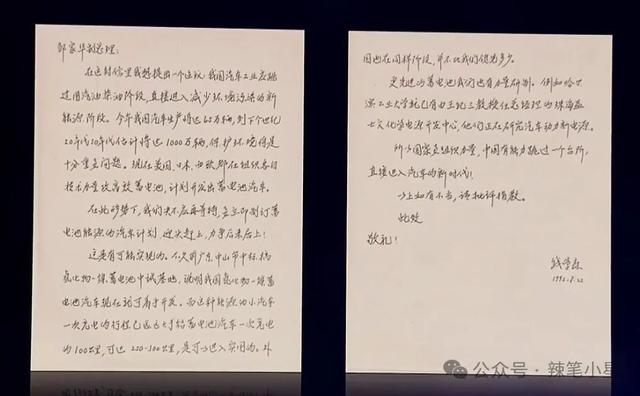 邹家华副总理：
在这封信里我想提出一个建议：我国汽车工业应跳
过用汽油柴油阶段，直接进入减少环境污染的新
能源阶段。今年我国汽车生产将达62万辆，到下个世纪
20年代10年代估计将达1000万辆，保护环境将是
十分重要问题。现在美国、日本、西欧都在组织各自
技术力量攻高效蓄电池，计划开发出蓄电池汽车。
在此形势下，我们决不应再等待，要立即制订蓄
电池能源的汽车计划，迎头赶上，力争后来居上！
这是有可能实现的。不久前广东中山市中标，搞
氢化物—镍蓄电池中试基地，说明我国氢化物—镍蓄
电池汽车现在就可着手开发。而这种能源的小汽车
一次充电的行程已远远大于铅蓄电池汽车一次充电
的100公里，可达250-300公里，是可以进入实用的。外
国也在同样阶段，并不比我们优先多少。
更先进的蓄电池我们也有力量研制。例如哈尔
滨工业大学就已有由王纪三教授任总经理的珠海益
士文化学电源开发中心，他们正在研究汽车动力新电源。
所以国家要组织力量，中国有能力跳过一个台阶，
直接进入汽车的新时代！
以上如有不当，请批评指教。
此致
敬礼！
钱学森
1992.8.22
公众号·辣笔小星